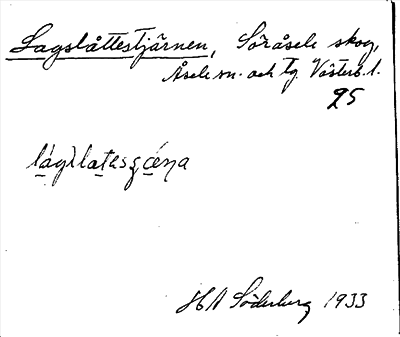 Lagslåttestjärnen, Söråsele skog,
Åsele sn. och tg. Västerb. l.
25
HA Söderberg 1933